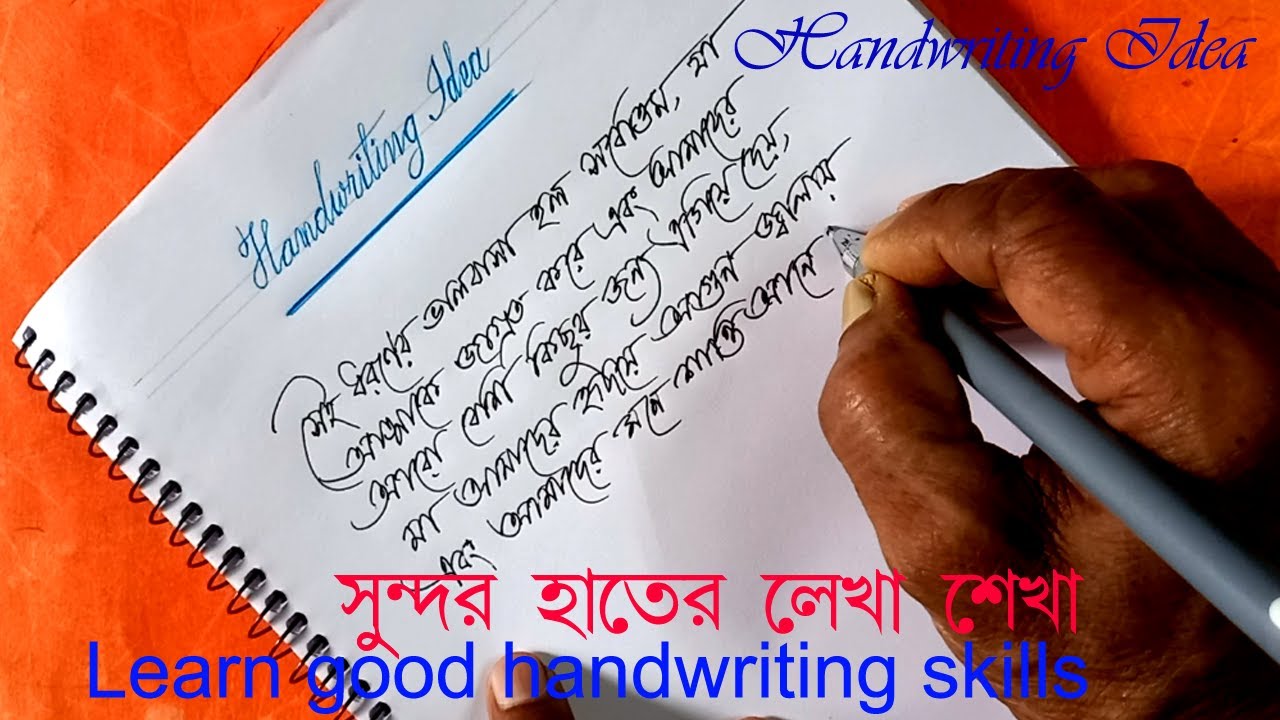 Handwriting Idea
Handwriting Idea
সেই ধরণের ভালবাসা হল সর্বোত্তম, যা
আত্মাকে জাগ্রত করে এবং আমাদের
আরো বেশী কিছুর জন্যে এগিয়ে দেয়,
যা আমাদের হৃদয়ে আগুন জ্বালায়
এবং আমাদের মনে শান্তি আনে
সুন্দর হাতের লেখা শেখা
Learn good handwriting skills